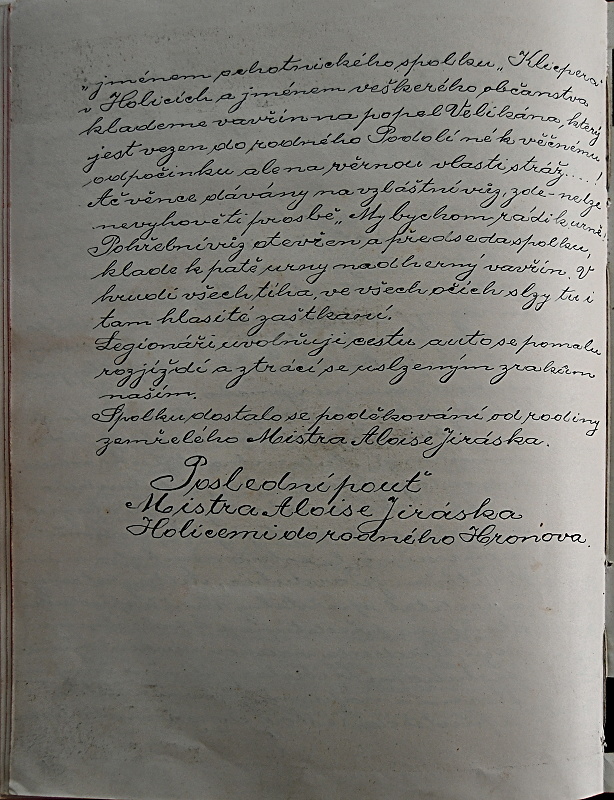 „jménem ochotnického spolku „Klicpera"
v Holicích a jménem veškerého občanstva
klademe vavřín na popel Velikána, který
jest vezen do rodného Podolí né k věčnému
odpočinku, ale na věrnou vlasti stráž....!
Ač věnce dávány na vzláštní vůz, zde-nelze
nevyhověti prosbě „My bychom rádi k urně!
Pohřební vůz otevřen, a předseda spolku,
klade k patě urny nadherný vavřín. V
hrudi všech tíha, ve všech očích slzy tu i
tam hlasité zaštkání.
Legionáři, uvolňují cestu auto se pomalu
rozjíždí a ztrácí se uslzeným zrakům
našim.
Spolku dostalo se poděkování od rodiny
zemřelého Mistra Aloise Jiráska.
Poslední pout"
Mistra Aloise Jiráska
Holicemi do rodného Hronova.